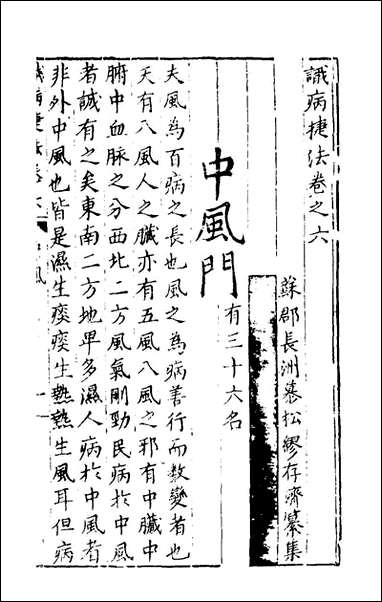 識病捷法卷之六
蘇郡長洲慕松繆存齋纂集
中風門
有三十六名
夫風為百病之長也風之為病善行而數變者也
天有八風人之臟亦有五風八風之邪有中臟中
腑中血脉之分西北二方風氣剛勁民病於中風
者誠有之矣東南二方地卑多濕人病於中風者
非外中風也皆是濕生痰痰生熱熱生風耳但病